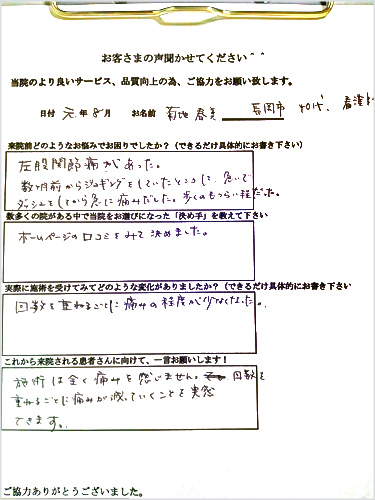 お客さまの声聞かせてください＾＾
当院のより良いサービス、品質向上の為、ご協力をお願い致します。
日付 元年8月 お名前 菊地 春美 長岡市 40代
来院前どのようなお悩みでお困りでしたか？（できるだけ具体的にお書き下さい）
左股関節痛があった。
数ヶ月前からジョギングをしていたところ、急いで
ダッシュをしてから急に痛みだした。歩くのもつらい程だった。
数多くの院がある中で当院をお選びになった「決め手」を教えて下さい
ホームページの口コミをみて決めました。
実際に施術を受けてみてどのような変化がありましたか？（できるだけ具体的にお書き下さい
回数を重ねるごとに痛みの程度が少なくなった。
これから来院される患者さんに向けて、一言お願いします！
施術は全く痛みを感じません。回数を
重ねるごとに痛みが減っていくことを実感
できます。
ご協力ありがとうございました。